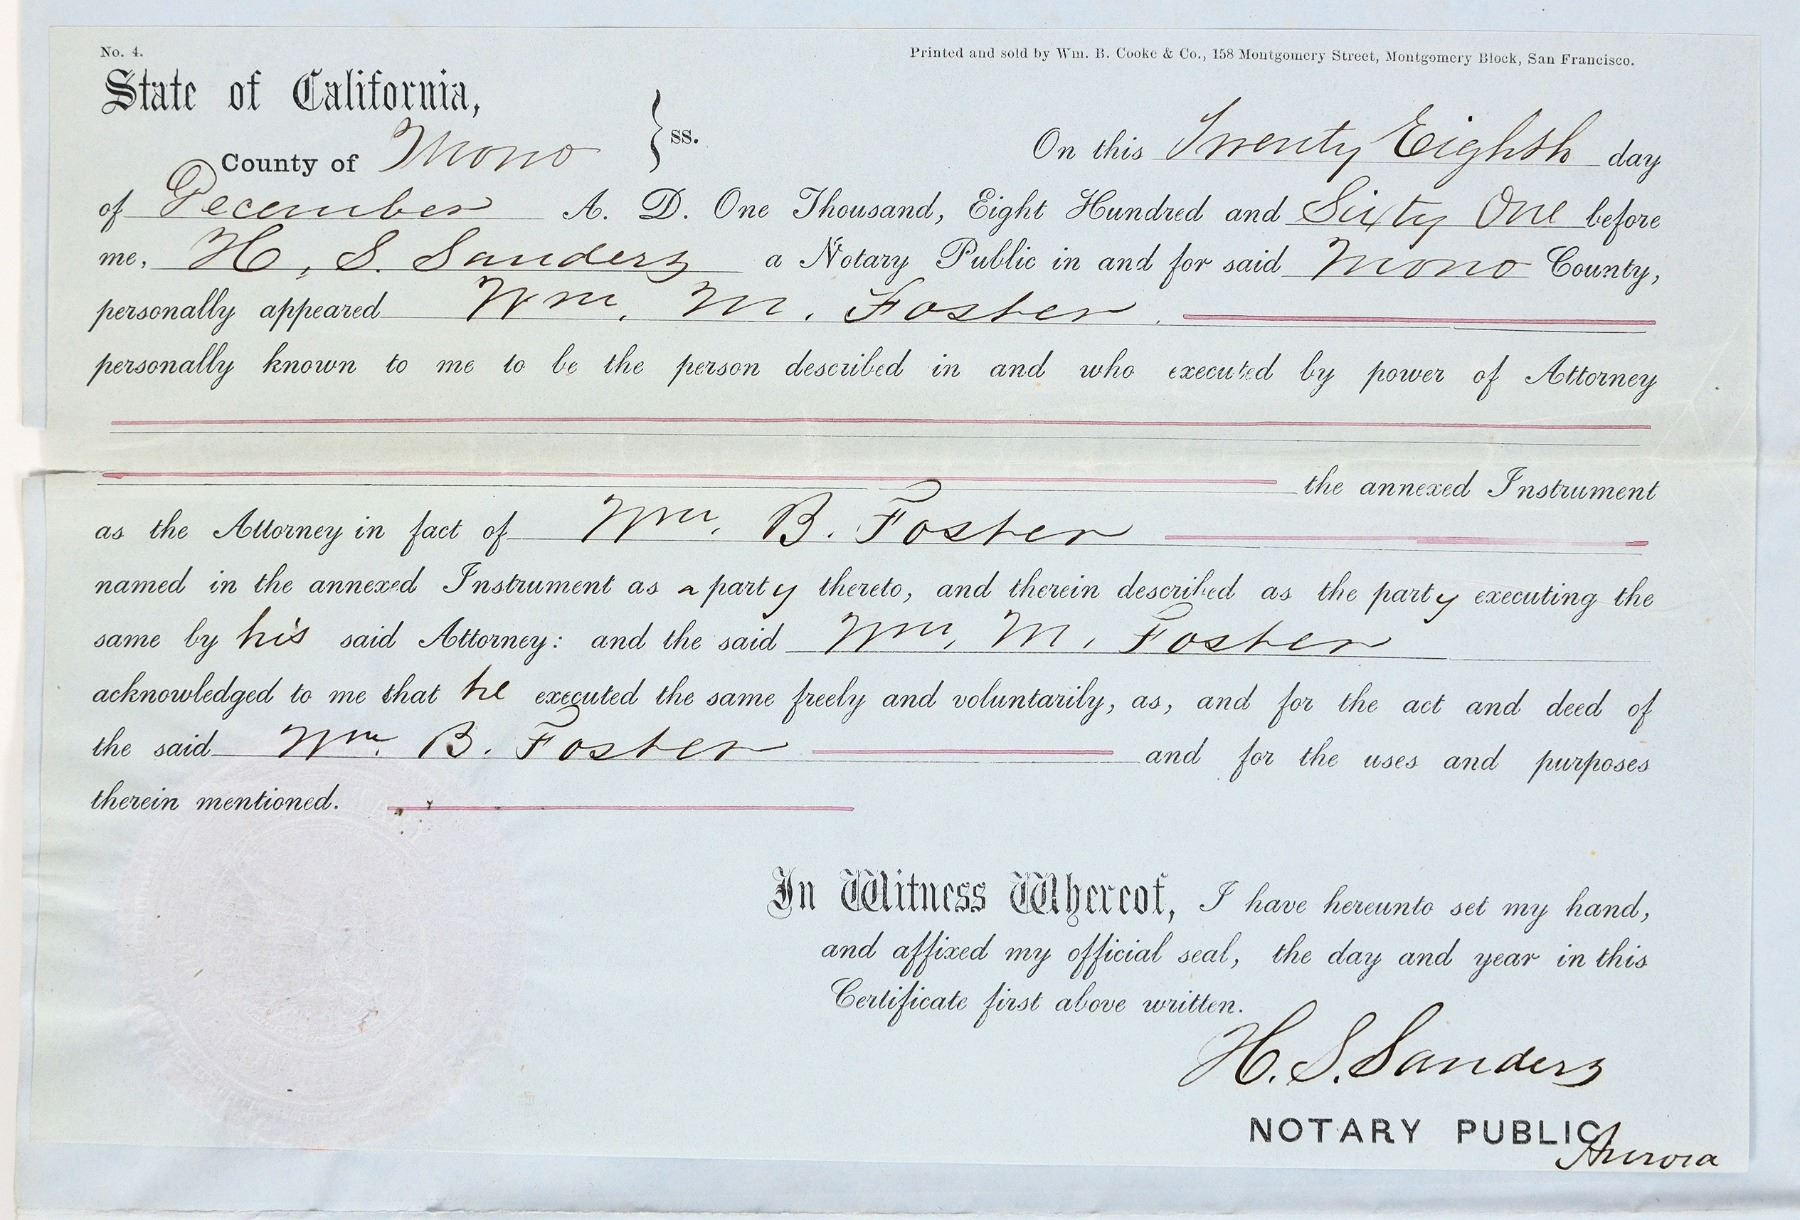 No. 4.
Printed and sold by Wm. B. Cooke & Co., 158 Montgomery Street, Montgomery Block, San Francisco.
State of California,
County of Mono } ss.
On this Twenty Eighth day
of December A. D. One Thousand, Eight Hundred and Sixty One before
me, H. S. Sanders a Notary Public in and for said Mono County,
personally appeared Wm. M. Foster.
personally known to me to be the person described in and who executed by power of Attorney
the annexed Instrument
as the Attorney in fact of Wm. B. Foster
named in the annexed Instrument as a party thereto, and therein described as the party executing the
same by his said Attorney: and the said Wm. M. Foster
acknowledged to me that he executed the same freely and voluntarily, as, and for the act and deed of
the said Wm. B. Foster and for the uses and purposes
therein mentioned.
In Witness Whereof, I have hereunto set my hand,
and affixed my official seal, the day and year in this
Certificate first above written.
H. S. Sanders
NOTARY PUBLIC,
Aurora